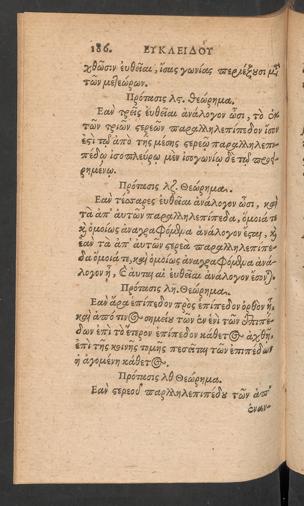 186. ΕΥΚΛΕΙΔΟΥ
χθῶσιν εὐθεῖαι, ἴσας γωνίας περιέξουσι μετὰ
τῶν μετεώρων.
Πρότασις λς. Θεώρημα.
Ἐὰν τρεῖς εὐθεῖαι ἀνάλογον ὦσι, τὸ ἐκ
τῶν τριῶν στερεὸν παραλληλεπίπεδον ἴσον
ἐστὶ τῷ ἀπὸ τῆς μέσης στερεῷ παραλληλεπι-
πέδῳ ἰσοπλεύρῳ μὲν ἰσογωνίῳ δὲ τῷ προει-
ρημένῳ.
Πρότασις λζ. Θεώρημα.
Ἐὰν τέσσαρες εὐθεῖαι ἀνάλογον ὦσι, καὶ
τὰ ἀπ' αὐτῶν παραλληλεπίπεδα, ὅμοιά τε
καὶ ὁμοίως ἀναγραφόμενα ἀνάλογον ἔσται, καὶ
ἐὰν τὰ ἀπ' αὐτῶν στερεὰ παραλληλεπίπε-
δα ὅμοιά τε, καὶ ὁμοίως ἀναγραφόμενα ἀνά-
λογον ᾖ, καὶ αὐταὶ αἱ εὐθεῖαι ἀνάλογον ἔσονται.
Πρότασις λη. Θεώρημα.
Ἐὰν ἄρα ἐπίπεδον πρὸς ἐπίπεδον ὀρθὸν ᾖ,
καὶ ἀπό τινος σημείου τῶν ἐν ἑνὶ τῶν ἐπιπέ-
δων ἐπὶ τὸ ἕτερον ἐπίπεδον κάθετος ἀχθῇ,
ἐπὶ τῆς κοινῆς τομῆς πεσεῖται τῶν ἐπιπέδων
ἡ ἀγομένη κάθετος.
Πρότασις λθ Θεώρημα.
Ἐὰν στερεοῦ παραλληλεπιπέδου τῶν ἀπ'
εναν-